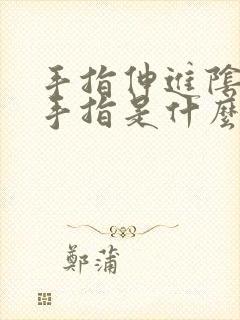 手指伸進陰
手指是什麼
鄭蒲